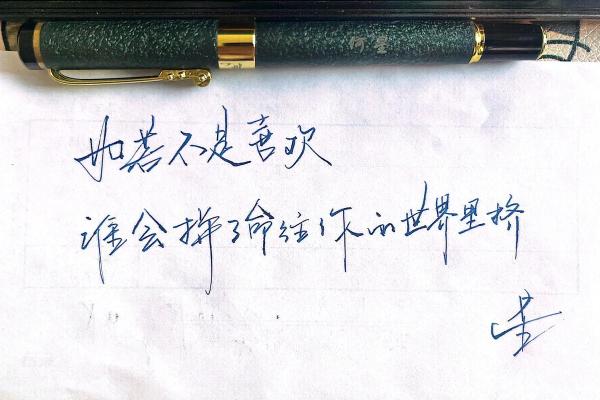 如若不是喜欢
谁会拼了命往你的世界里挤